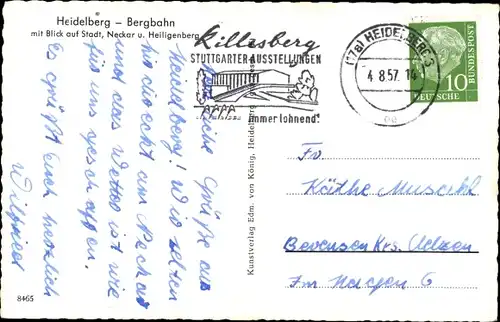 Heidelberg – Bergbahn
mit Blick auf Stadt, Neckar u. Heiligenberg
Killesberg
STUTTGARTER AUSSTELLUNGEN
immer lohnend!
(17a) HEIDELBERG 3
4.8.57
10
DEUTSCHE
BUNDESPOST
Herzliche Grüße aus
Heidelberg! Wir zelten
hier direkt am Neckar
und das Wetter ist wie
für uns geschaffen.
Es grüßt Euch herzlich
Wilfried
Kunstverlag Edm. von König, Heidelberg
Fr.
Käthe
Bevensen Krs. Uelzen
Im Hagen 6
8465